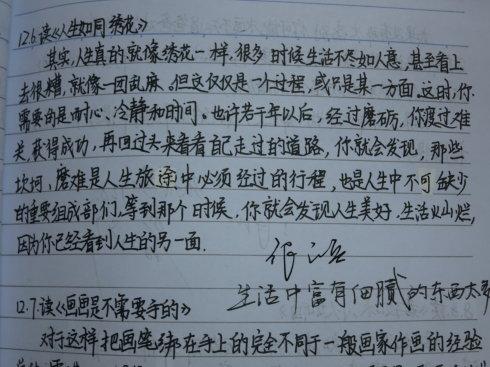 12.6.读《人生如同绣花》
其实,人生真的就像绣花一样,很多时候生活不尽如人意,甚至看上
去很糟,就像一团乱麻。但这仅仅是一个过程,或只是某一方面.这时,你
需要的是耐心、冷静和时间。也许若干年以后,经过磨砺,你渡过难
关,获得成功,再回过头来看看自己走过的道路,你就会发现,那些
坎坷、磨难是人生旅途中必须经过的行程,也是人生中不可缺少
的重要组成部们,等到那个时候,你就会发现人生美好,生活灿烂,
因为你已经看到人生的另一面.
生活中富有细腻的东西太多
12.7.读《画画是不需要手的》
对于这样把画笔绑在手上的完全不同于一般画家作画的经验